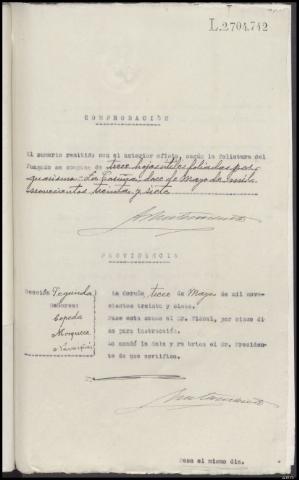 L.2704.742
COMPROBACIÓN
El sumario remitido con el anterior oficio, según la foliatura del
Juzgado se compone de trece hojas útiles foliadas por
guarismo.- La Coruña, doce de Mayo de mil
novecientos treinta y siete
PROVIDENCIA
Sección Segunda
Señores:
Cepeda
Mosquera
La Coruña trece de Mayo de mil nove-
cientos treinta y siete.
Pase esta causa al Sr. Fiscal, por cinco dí-
as para instrucción.
Lo mandó la Sala y rubrica el Sr. Presidente
de que certifico.
Pasa el mismo día.